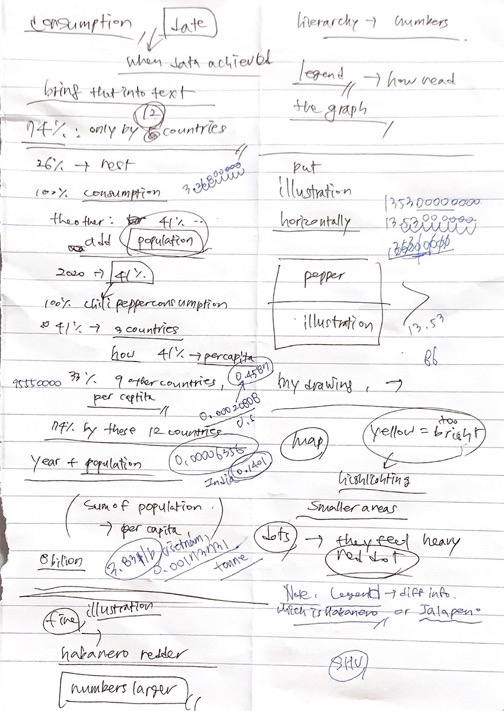 consumption date
when data achieved
bring that into text
12
74% : only by countries
26% → rest
100% consumption
the other : 41%
add population
2020 → 41%
100% chili pepper consumption
41% → 3 countries
how 41% → per capita
95550000 33% 9 other countries, 0.4587
per capita
0.00020808
0.5
74% by these 12 countries
0,00006356
year + population
India 0.1401
(sum of population
→ per capita)
8 billion
Vietnam,
tonne
fine, illustration
→
habanero redder
numbers larger
hierarchy → numbers
legend → how read
the graph
put
illustration
horizontally
13530000000
pepper
illustration
13.53
86
my drawing, →
map
yellow = too bright
highlighting
smaller areas
dots → they feel heavy
red dot
Note, Legend → diff info.
which is Habanero or Jalapeno
SHU